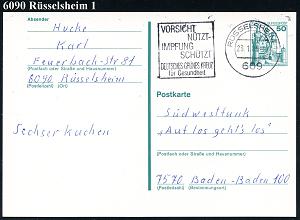 6090 Rüsselsheim 1
Absender
Hucke
Karl
Feuerbach-Str 81
(Postfach oder Straße und Hausnummer)
6090 Rüsselsheim
(Postleitzahl) (Ort)
Sechserkuchen
VORSICHT
NÜTZT-
IMPFUNG
SCHÜTZT
DEUTSCHES GRÜNES KREUZ
für Gesundheit
RÜSSELSHEIM
609
50
Postkarte
Südwestfunk
"Auf los geht's los"
(Postfach oder Straße und Hausnummer)
7570 Baden-Baden 100
(Postleitzahl) (Bestimmungsort)